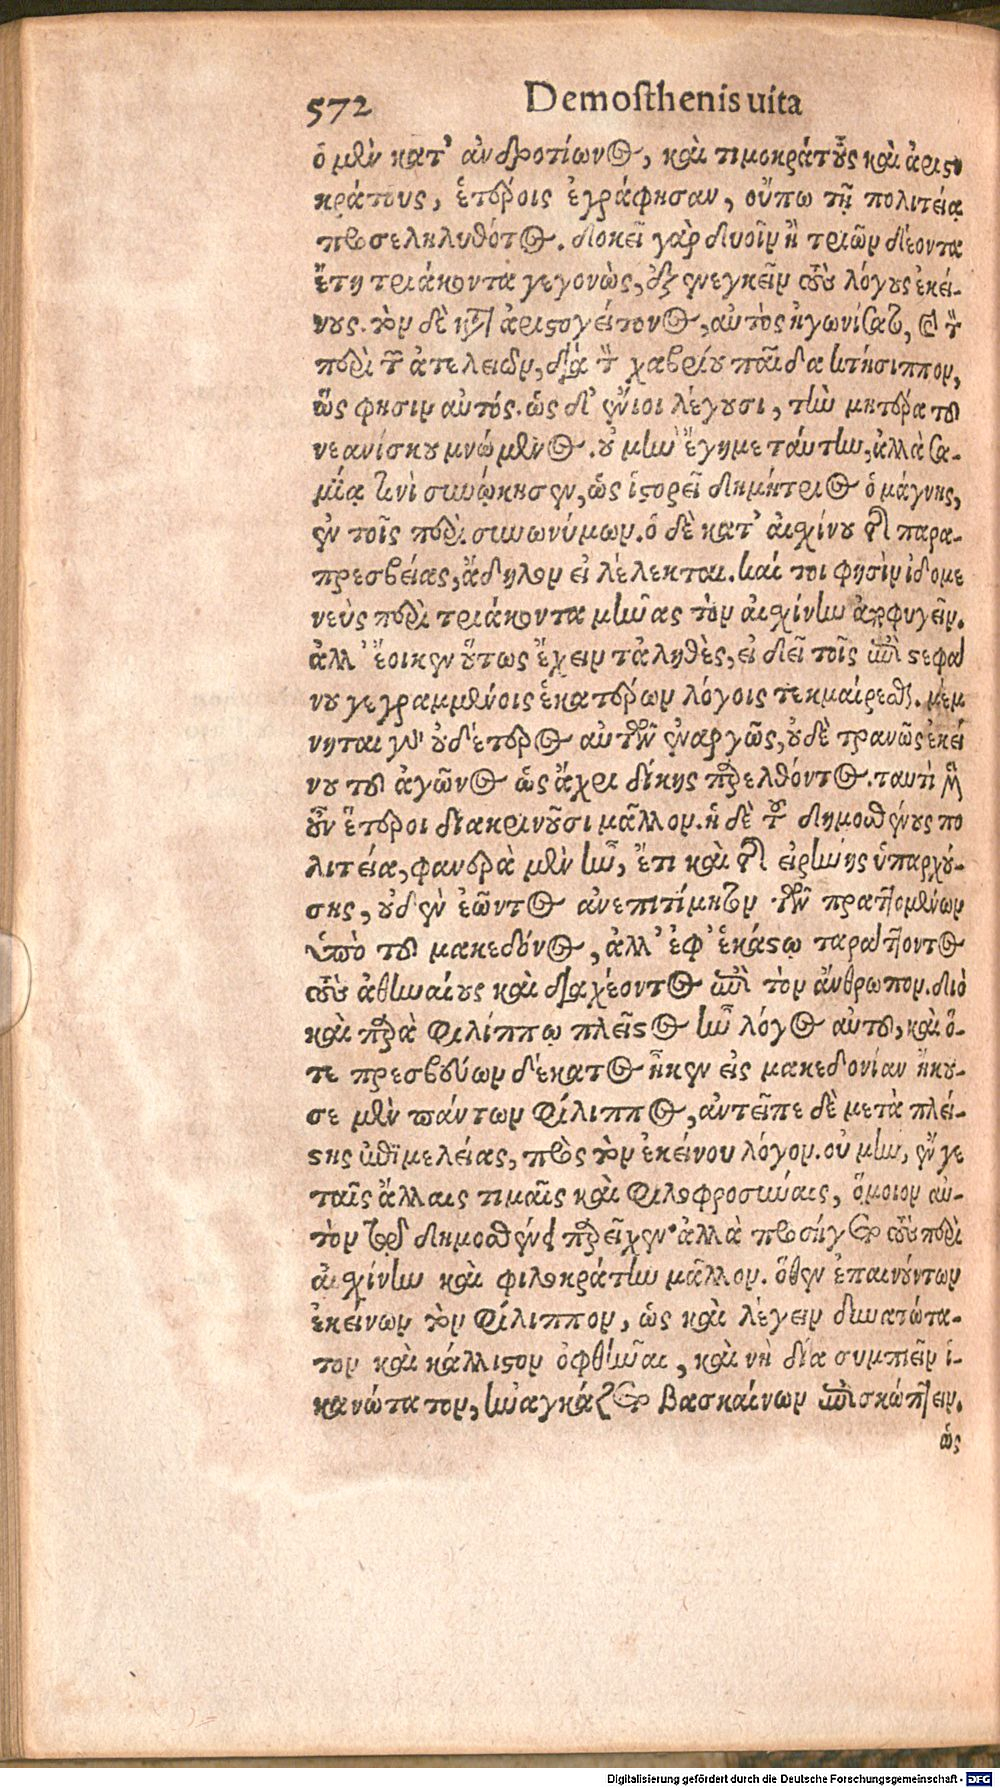 572 Demosthenis uita
ὁ μὲν κατ' ἀνδροτίωνος, καὶ τιμοκράτους καὶ ἀριστο
κράτους, ἑτέροις ἐγράφησαν, οὔπω τῇ πολιτείᾳ
προσεληλυθότος. δοκεῖ γὰρ δυοῖν ἢ τριῶν δέοντα
ἔτη τριάκοντα γεγονὼς, ἐξενεγκεῖν τοὺς λόγους ἐκεί-
νους. τὸν δὲ κατὰ ἀριστογείτονος, αὐτὸς ἠγωνίσατο, καὶ τὸν
περὶ τῶν ἀτελειῶν, διὰ τὸν χαβρίου παῖδα κτήσιππον,
ὥς φησιν αὐτός. ὡς δ' ἔνιοι λέγουσι, τὴν μητέρα τοῦ
νεανίσκου μνώμενος. οὐ μὴν ἔγημε ταύτην, ἀλλὰ σα-
μίᾳ τινὶ συνῴκησεν, ὡς ἱστορεῖ δημήτριος ὁ μάγνης,
ἐν τοῖς περὶ συνωνύμων. ὁ δὲ κατ' αἰσχίνου τῆς παρα-
πρεσβείας, ἄδηλον εἰ λέλεκται. καί τοι φησὶν ἰδομε
νεὺς περὶ τριάκοντα μνᾶς τὸν αἰσχίνην ἀποφυγεῖν.
ἀλλ' ἔοικεν οὕτως ἔχειν τἀληθὲς, εἰ δεῖ τοῖς περὶ στεφά
νου γεγραμμένοις ἑκατέρων λόγοις τεκμαίρεσθαι. μέμ
νηται γὰρ οὐδέτερος αὐτῶν ἐναργῶς, οὐδὲ τρανῶς ἐκεί
νου τοῦ ἀγῶνος ὡς ἄχρι δίκης προελθόντος. ταυτὶ μὲν
οὖν ἕτεροι διακρινοῦσι μᾶλλον. ἡ δὲ τοῦ δημοσθένους πο
λιτεία, φανερὰ μὲν ἦν, ἔτι καὶ τῆς εἰρήνης ὑπαρχού-
σης, οὐδὲν ἐῶντος ἀνεπιτίμητον τῶν πραττομένων
ὑπὸ τοῦ μακεδόνος, ἀλλ' ἐφ' ἑκάστῳ ταράττοντος
τοὺς ἀθηναίους καὶ διαχέοντος ἐπὶ τὸν ἄνθρωπον. διὸ
καὶ παρὰ Φιλίππῳ πλεῖστος ἦν λόγος αὐτοῦ, καὶ ὅ-
τε πρεσβεύων δέκατος ἧκεν εἰς μακεδονίαν ἤκου-
σε μὲν πάντων Φίλιππος, ἀντεῖπε δὲ μετὰ πλεί-
στης ἐπιμελείας, πρὸς τὸν ἐκείνου λόγον. οὐ μὴν, ἔν γε
ταῖς ἄλλαις τιμαῖς καὶ Φιλοφροσύναις, ὅμοιον αὑ-
τὸν τῷ δημοσθένει παρεῖχεν· ἀλλὰ προσήγετο τοὺς περὶ
αἰσχίνην καὶ φιλοκράτην μᾶλλον. ὅθεν ἐπαινούντων
ἐκείνων τὸν Φίλιππον, ὡς καὶ λέγειν δυνατώτα-
τον καὶ κάλλιστον ὀφθῆναι, καὶ νὴ δία συμπιεῖν ἱ-
κανώτατον, ἠναγκάζετο βασκαίνων ἐπισκώπτειν.
ὡς
Digitalisierung gefördert durch die Deutsche Forschungsgemeinschaft - DFG